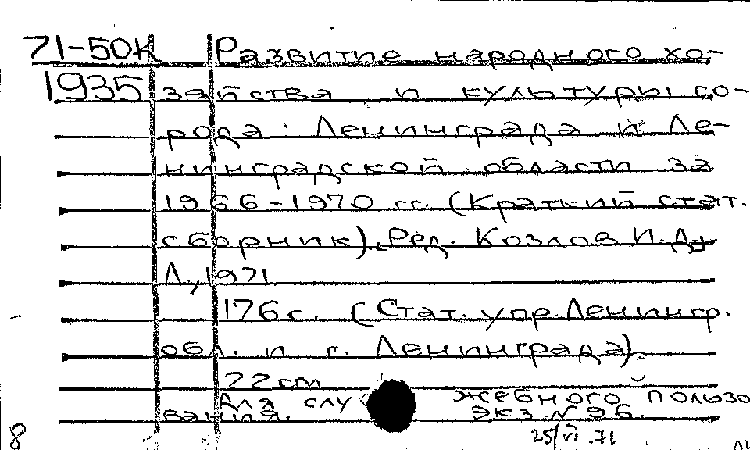 71-50к Развитие народного хо-
1935 зяйства и культуры го-
рода Ленинграда и Ле-
нинградской области за
1966-1970 гг. (Краткий стат.
сборник). Ред. Козлов И.Д.
Л., 1971
176 с. (Стат. упр. Ленингр.
обл. и г. Ленинграда).
22 см
Для служебного пользо
вания. Экз. N 96.
25/VI.71
8